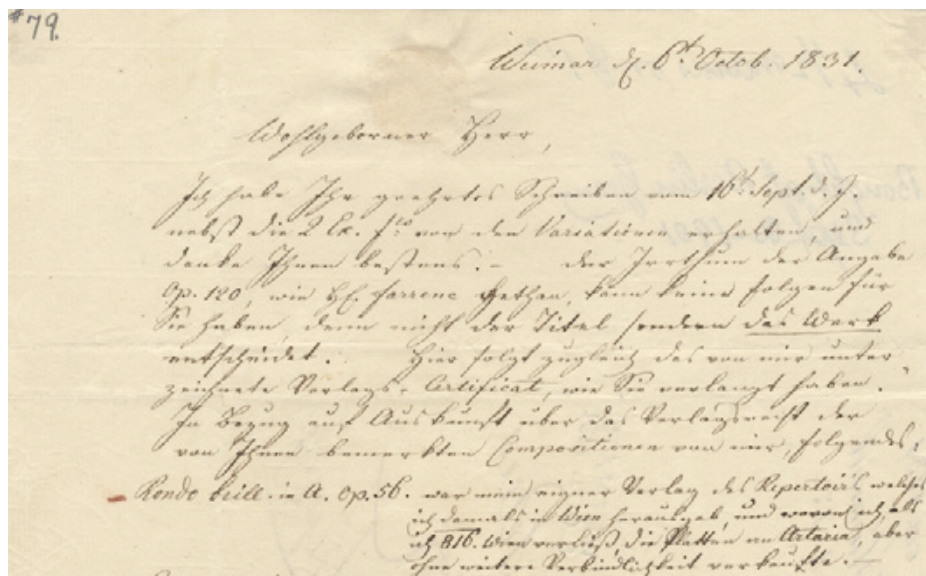 # 79.
Weimar d. 6t Octob. 1831.
Wohlgeborner Herr,
Ich habe Ihr geehrtes Schreiben vom 16t Sept. d. J.
nebst die 2 Ex. von den Variationen erhalten, und
danke Ihnen bestens. – der Irrthum der Angabe
Op. 120, wie H. Farrenc gethan, kann keine Folgen für
Sie haben, denn nicht der Titel sondern das Werk
entscheidet. Hier folgt zugleich das von mir unter
zeichnete Verlags-Certificat, wie Sie verlangt haben.
In Bezug auf Auskunft über das Verlagsrecht der
von Ihnen bemerkten Compositionen von mir, folgendes:
Rondo brill. in A. Op. 56. war mein eigner Verlag des Repertoir's welches
ich damals in Wien herausgab, und wovon ich als
ich 816. Wien verließ, die Platten an Artaria, aber
ohne weitere Verbindlichkeit verkaufte. –